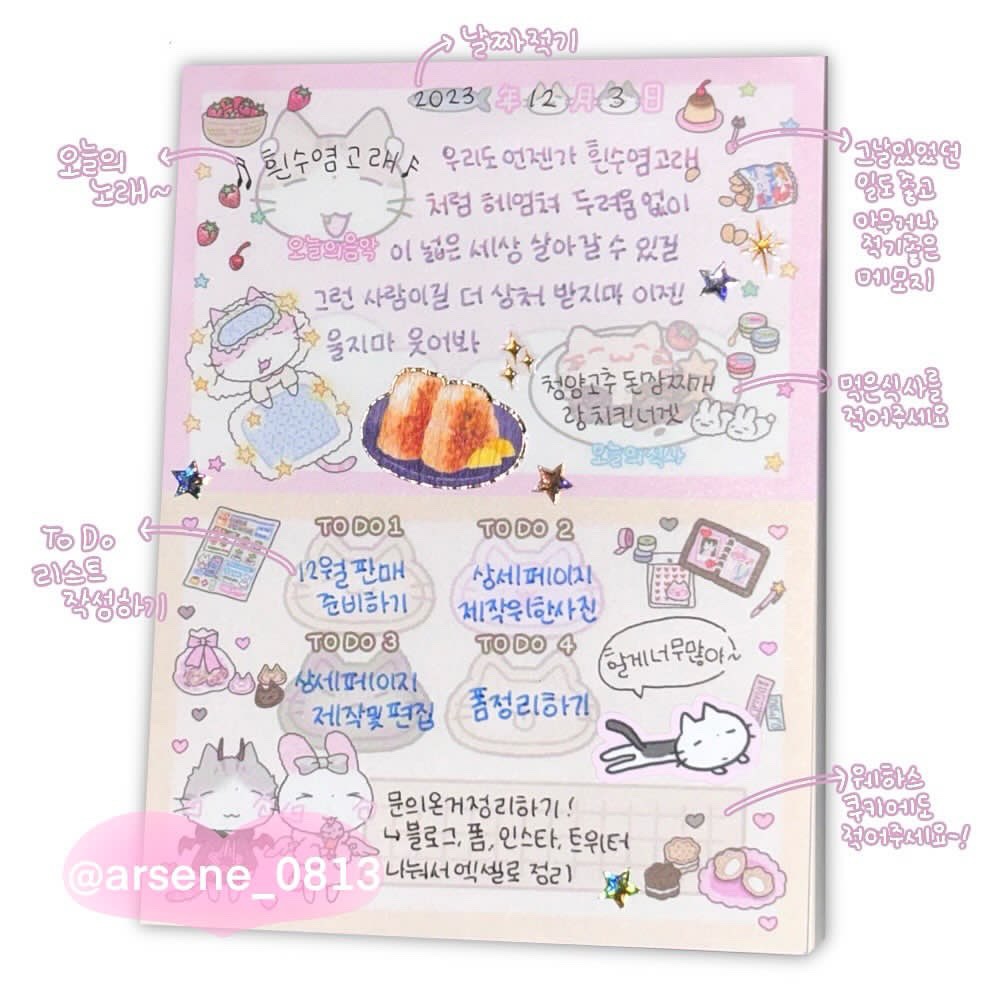 날짜적기
2023 年 12 月 3 日
오늘의
노래~
흰수염고래
오늘의음악
우리도 언젠가 흰수염고래
처럼 헤엄쳐 두려움 없이
이 넓은 세상 살아갈 수 있길
그런 사람이길 더 상처 받지마 이젠
울지마 웃어봐
그날있었던
일도 좋고
아무거나
적기좋은
메모지
청양고추 돈짬찌개
랑 치킨너겟
오늘의식사
먹은식사를
적어주세요
TO DO
리스트
작성하기
TO DO 1
12월 판매
준비하기
TO DO 2
상세페이지
제작위한사진
TO DO 3
상세페이지
제작및 편집
TO DO 4
폼정리하기
할게너무많아~
문의온거정리하기!
↳블로그, 폼, 인스타, 트위터
나눠서 엑셀로 정리
웨하스
쿠키에도
적어주세요~!
@arsene_0813